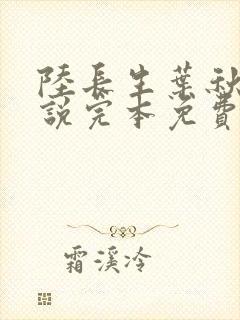 陸長生葉秋
說完本免費
霜溪冷